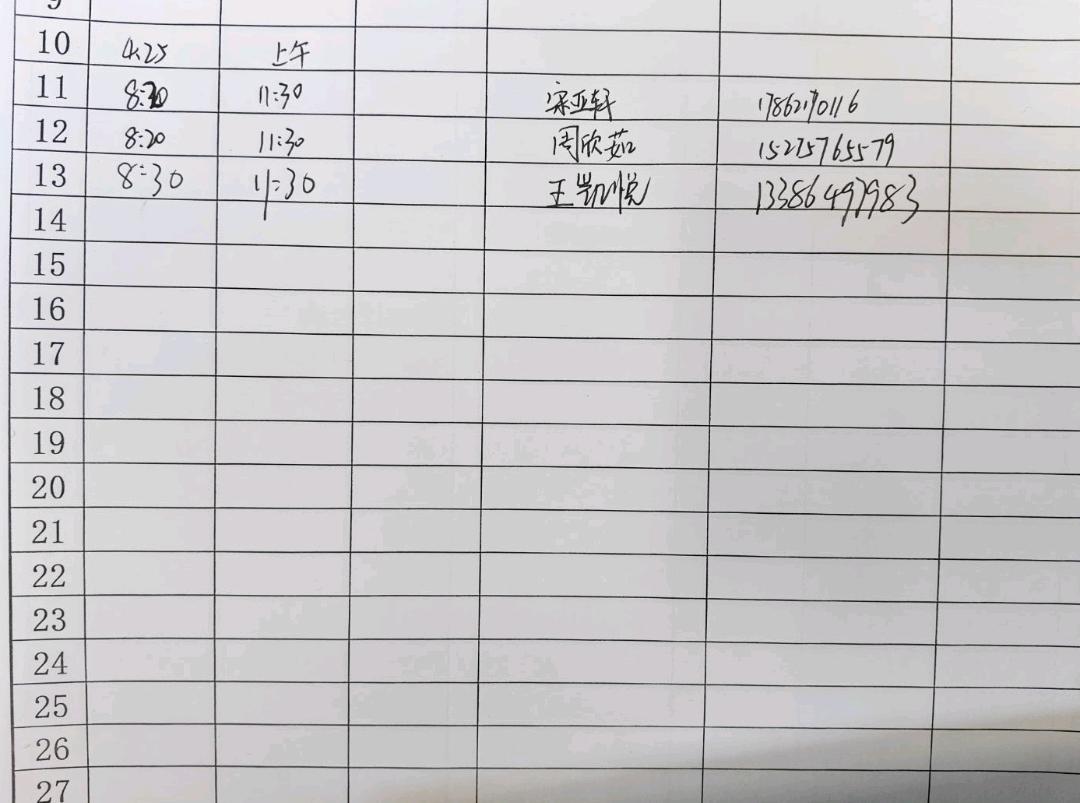 10 4.25 上午
11 8:20 11:30 宋亚轩 17862170116
12 8:20 11:30 周欣茹 15275765579
13 8:30 11:30 王凯悦 13386497983
14
15
16
17
18
19
20
21
22
23
24
25
26
27